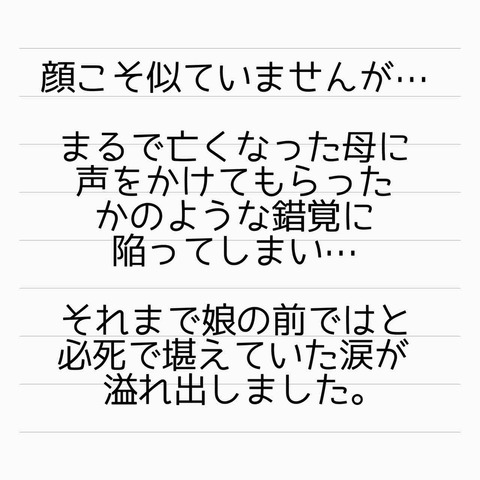 顔こそ似ていませんが…
まるで亡くなった母に
声をかけてもらった
かのような錯覚に
陥ってしまい…
それまで娘の前ではと
必死で堪えていた涙が
溢れ出しました。